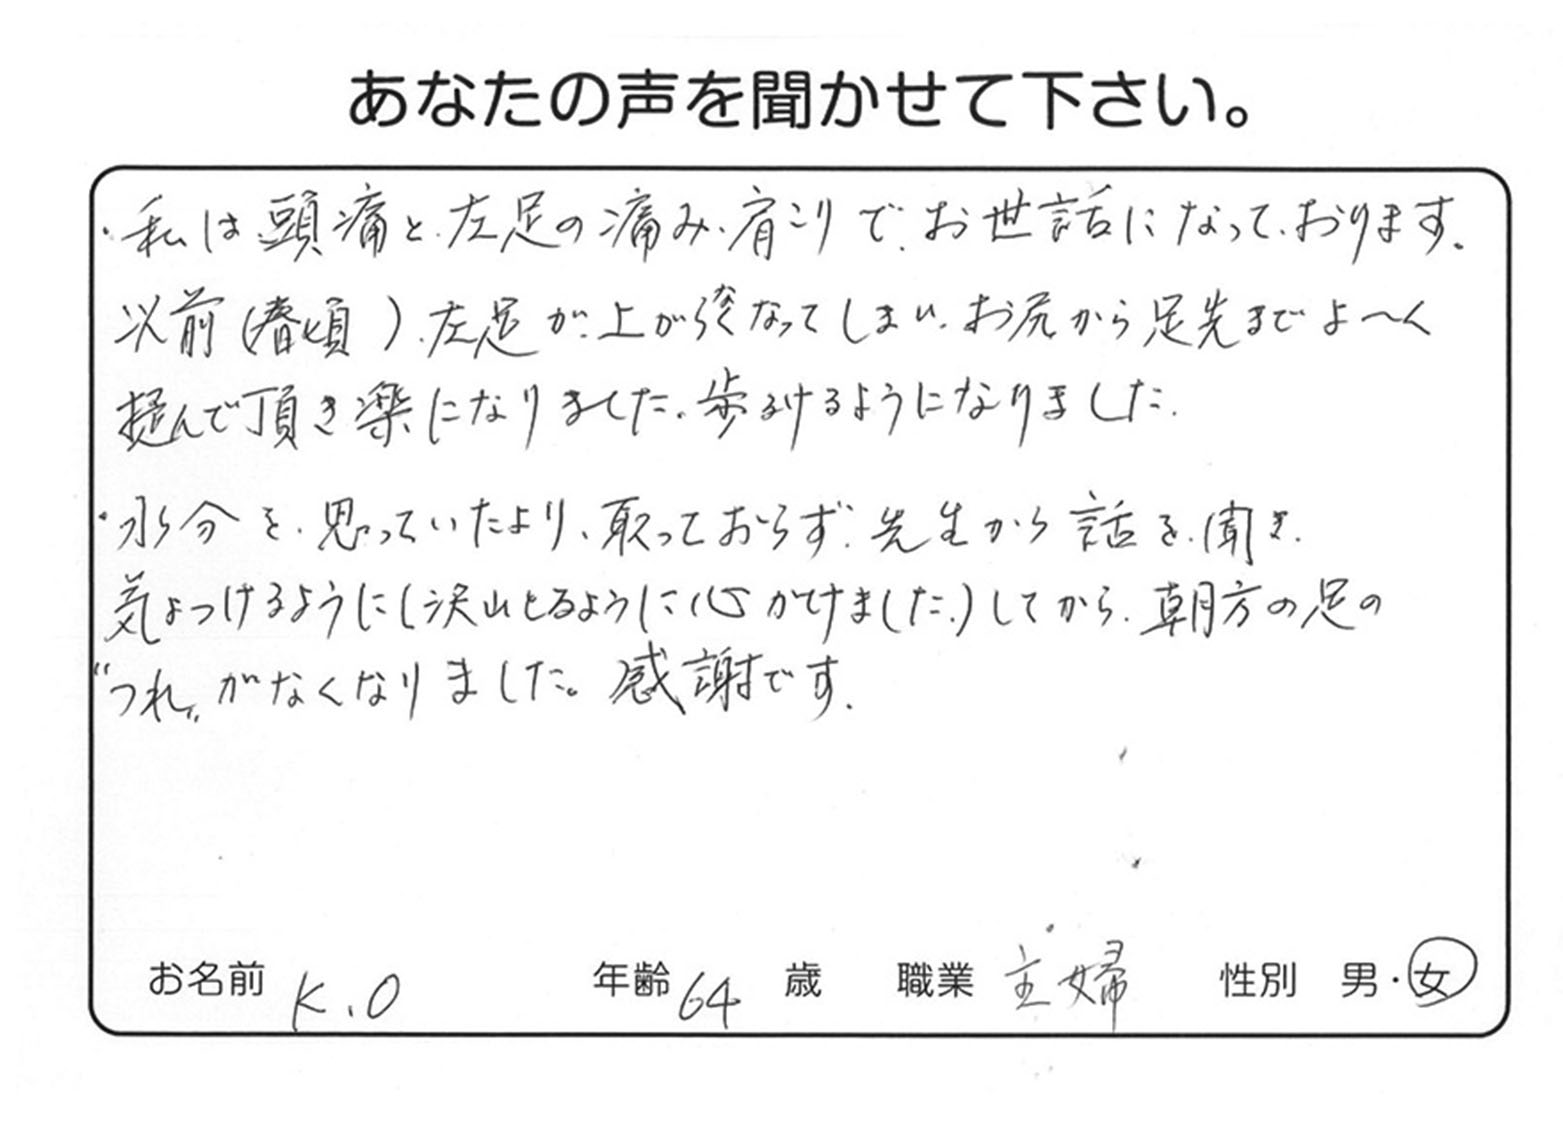 あなたの声を聞かせて下さい。
・私は頭痛と、左足の痛み、肩こりで、お世話になって、おります。
以前(春頃)、左足が、上がらなくなってしまい、お尻から足先までよ～く
揉んで頂き楽になりました。歩るけるようになりました。
・水分を、思っていたより、取っておらず、先生から話を、聞き、
気よつけるように(沢山とるように心がけました。)してから、朝方の足の
“つれ„がなくなりました。感謝です。
お名前 K.O 年齢 64 歳 職業 主婦 性別 男・女